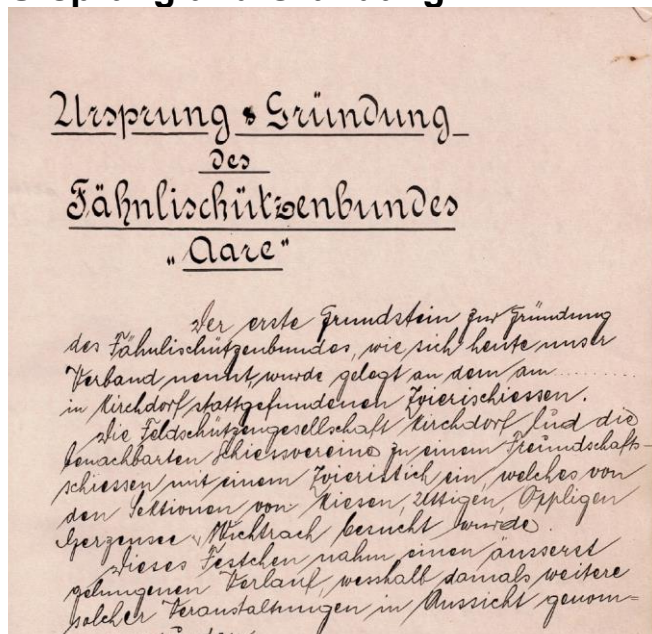 Ursprung & Gründung
des
Fähnlischützenbundes
„Aare“
Der erste Grundstein zur Gründung
des Fähnlischützenbundes, wie sich heute unser
Verband nennt, wurde gelegt an dem am ............
in Kirchdorf stattgefundenen Zvierischiessen.
Die Feldschützengesellschaft Kirchdorf lud die
benachbarten Schiessvereine zu einem Freundschafts-
schiessen mit einem Zvieristich ein, welches von
den Sektionen von Kiesen, Uttigen, Oppligen
Gerzensee & Wichtrach besucht wurde.
Dieses Festchen nahm einen äusserst
gelungenen Verlauf, wesshalb damals weitere
solcher Veranstaltungen in Aussicht genom=